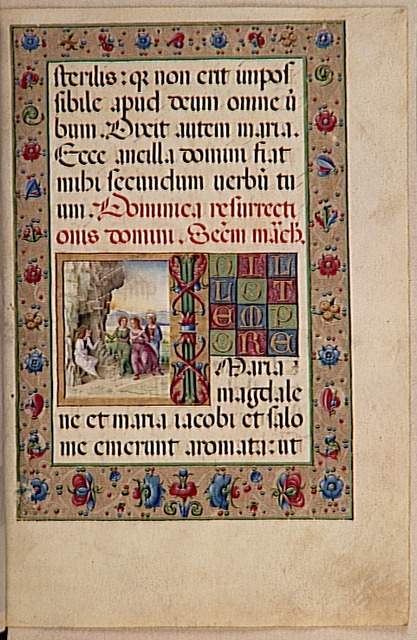 sterilis: q̃ non erit impos
sibile apud deum omne ũ
bum. Dixit autem maria.
Ecce ancilla domini fiat
mihi secundum uerbũ tu
um. Dominica resurrecti
onis domini. Secm̃ mãch.
IN ILL
LO T
EMP
ORE
Maria
magdale
ne et maria iacobi et salo
me emerunt aromata: ut